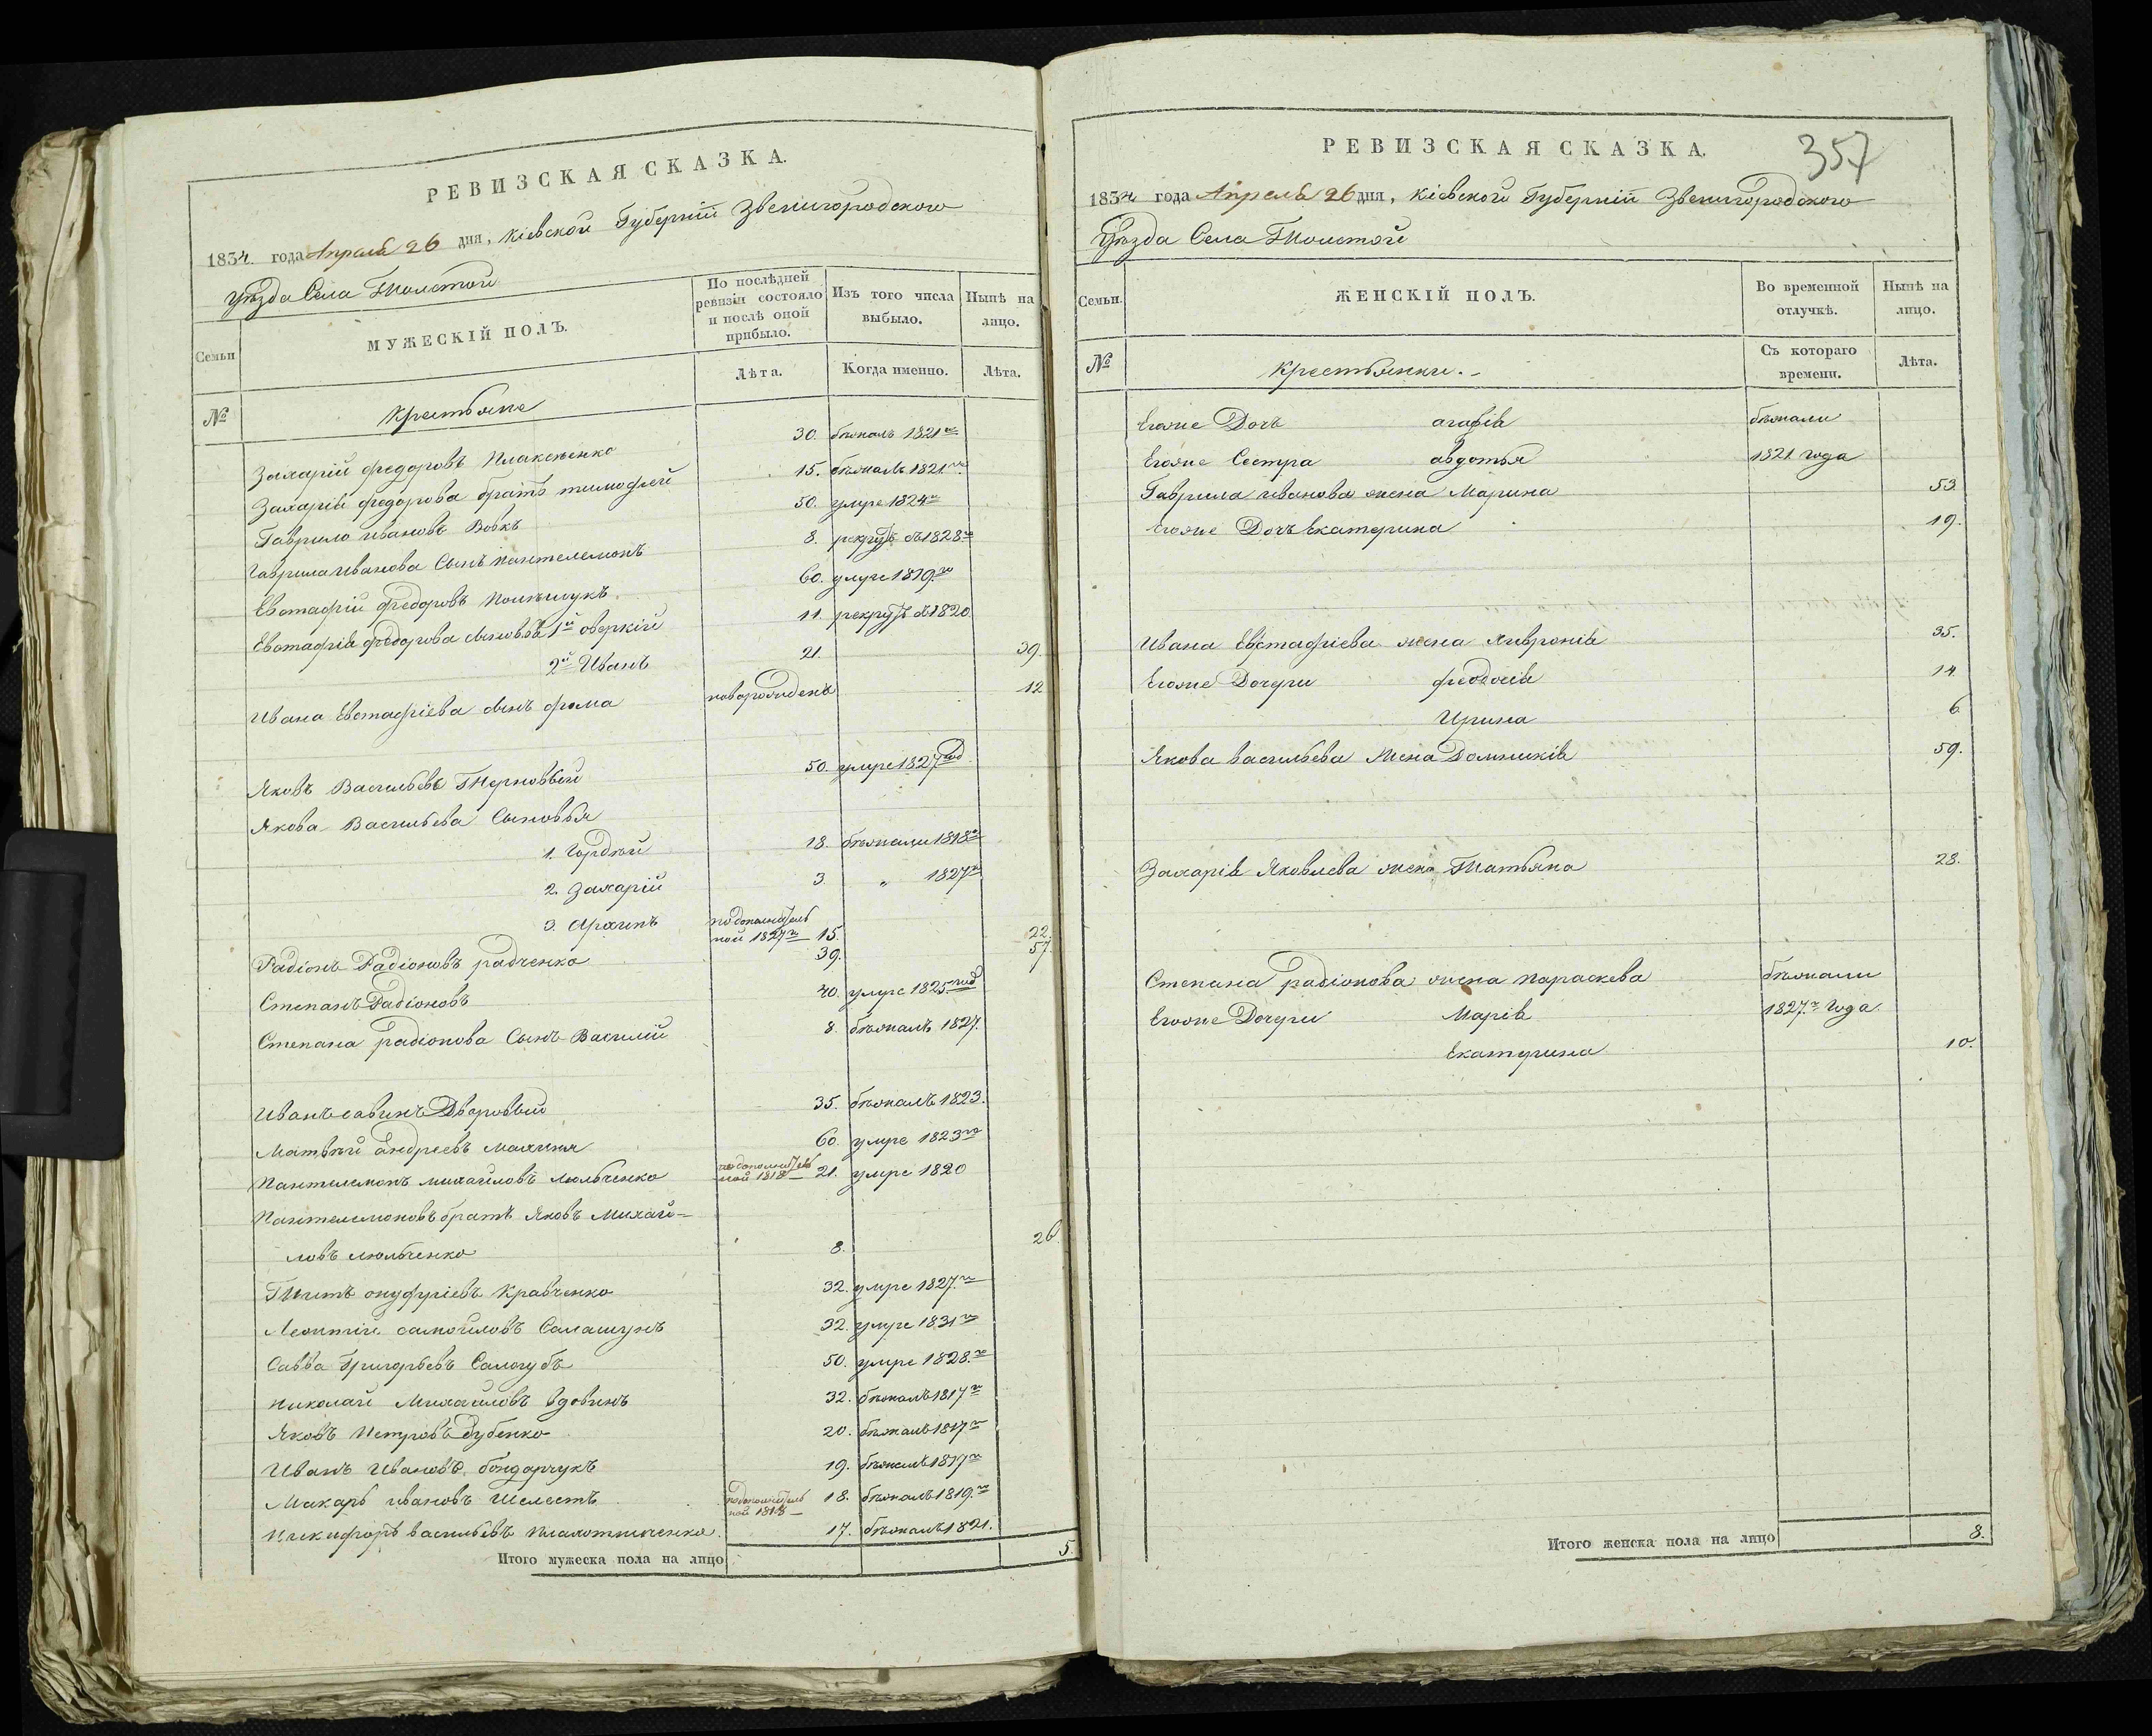 РЕВИЗСКАЯ СКАЗКА.
1834 года Апреля 26 дня, Кіевской Губерніи Звенигородского
Уѣзда Села Толстой
Семьи
МУЖЕСКІЙ ПОЛЪ.
По послѣдней ревизіи состояло и послѣ оной прибыло.
Изъ того числа выбыло.
Нынѣ на лицо.
№
Крестьяне
Лѣта.
Когда именно.
Лѣта.
Захарій федоровъ Плаксѣенко 30. бѣжалъ 1821го
Захарія федорова братъ тимофей 15. бѣжалъ 1821го
Гаврило ивановъ Вовкъ 50. умре 1824го
Гаврила иванова Сынъ пантелемонъ 8. рекрутъ съ 1828го
Евстафій федоровъ Полѣщукъ 60. умре 1819го
Евстафія федорова сыновья 1й оверкій 11. рекрутъ съ 1820
2й Иванъ 21. 39.
Ивана Евстафіева сынъ фома новорожденъ 12
Яковъ Васильевъ Терновый 50. умре 1827год
Якова Васильева Сыновья
1. Гордѣй 18. бѣжали 1818го
2. Захарій 3. „ 1827го
3. Архипъ
подополнитель
ной 1827го 15. 22.
Радіонъ Радіоновъ радченко 39. 57.
Степанъ Радіоновъ 40. умре 1825год
Степана радіонова Сынъ Василій 8. бѣжалъ 1827.
Иванъ савинъ Дворовый 35. бѣжалъ 1823.
Матвѣй андреевъ Махиня 60. умре 1823го
Пантелемонъ михайловъ люльченко подополнитель
ной 1818 21. умре 1820
Пантелемоновъ братъ Яковъ Михай-
ловъ люльченко 8. 26.
Титъ онуфріевъ Кравченко 32. умре 1827го
Леонтій самойловъ Салашунъ 32. умре 1831го
Савва Григорьевъ Салогубъ 50. умре 1828.го
Николай Михайловъ вдовинъ 32. бѣжалъ 1817го
Яковъ Петровъ Дубенко 20. бѣжалъ 1817го
Иванъ Ивановъ бондарчукъ 19. бѣжалъ 1817го
Макаръ ивановъ Шелестъ подополнитель
ной 1818 18. бѣжалъ 1819.го
Никифоръ васильевъ 17. бѣжалъ 1821.
Итого мужеска пола на лицо 5.
РЕВИЗСКАЯ СКАЗКА.
357
1834 года Апреля 26 дня, Кіевской Губерніи Звенигородского
Уѣзда Села Толстой
Семьи.
ЖЕНСКІЙ ПОЛЪ.
Во временной отлучкѣ.
Нынѣ на лицо.
№
Крестьянки.
Съ котораго времени.
Лѣта.
Егоже Дочъ агафія бѣжали
Егоже Сестра авдотья 1821 года
Гаврила иванова жена Марина 53.
Егоже Дочъ Екатерина 19.
Ивана Евстафіева жена Явронія 35.
Егоже Дочери феодосія 14.
Ирина 6
Якова васильева Жена Домникія 59.
Захарія Яковлева жена Татьяна 28.
Степана радіонова жена параскева бѣжали
Егоже Дочери Марія 1827.го Года
Екатерина 10.
Итого женска пола на лицо 8.